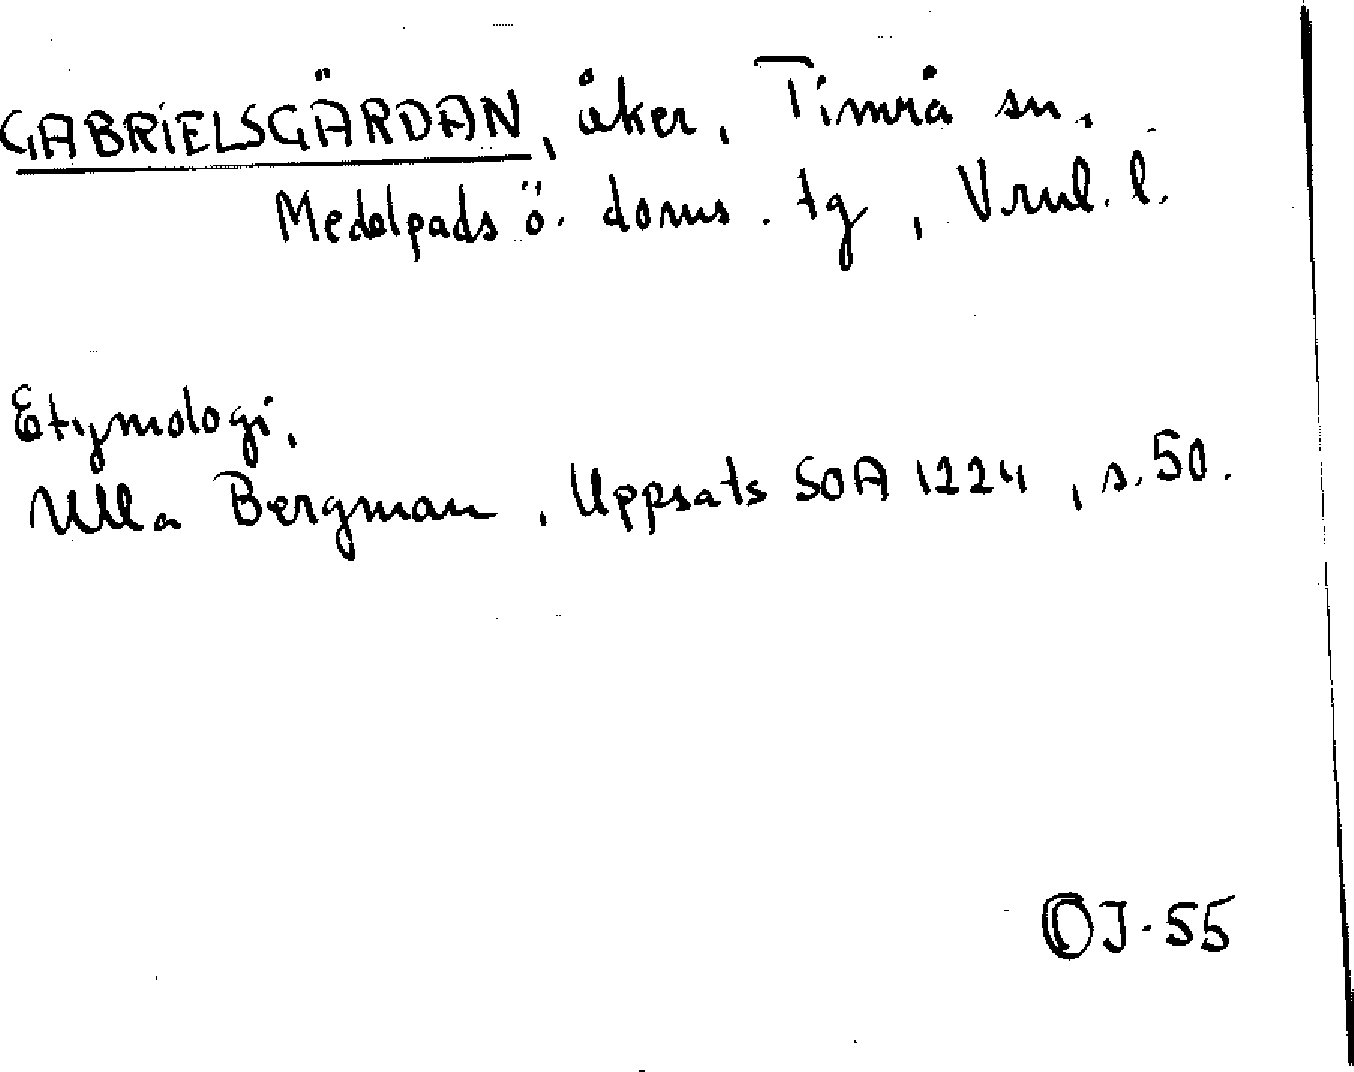 GABRIELSGÄRDAN, åker, Timrå sn,
Medelpads ö. doms. tg, Vrnl. l.
Etymologi,
Ulla Bergman, Uppsats SOA 1224, s. 50.
OJ-55